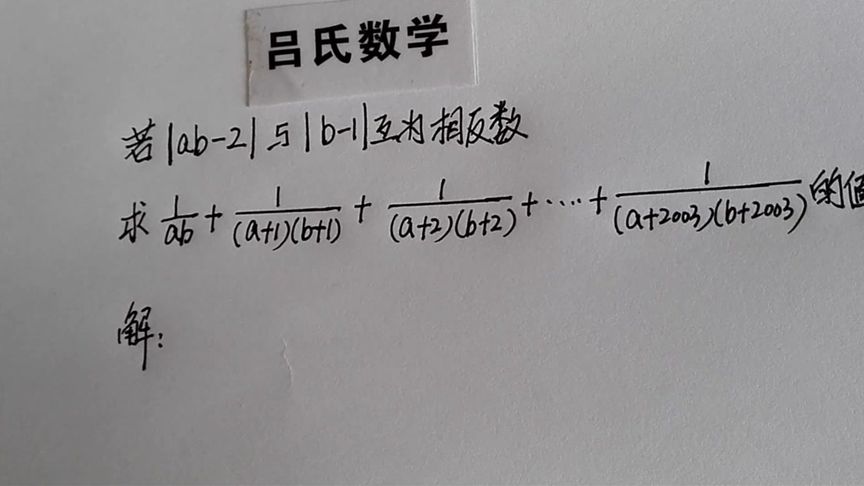 吕氏数学
若|ab-2|与|b-1|互为相反数
求 1/ab + 1/(a+1)(b+1) + 1/(a+2)(b+2) + ···· + 1/(a+2003)(b+2003) 的值
解: